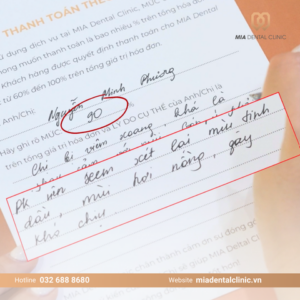 MIA
MIA DENTAL CLINIC
THANH TOÁN THE
dụng dịch vụ tại MIA Dental Clinic, MỨC
mong muốn thanh toán bao nhiêu % trên tổng hóa đơn
Khách hàng được quyết định thanh toán cho MIA Dental
từ 60% đến 100% trên tổng giá trị hóa đơn.
Anh/Chị: Nguyễn Minh Phương
Hãy ghi rõ MỨC 90
trên tổng giá trị hóa đơn và LÝ DO CỤ THỂ của Anh/Chị là
Chị bị viêm xoang, khá là
PK nên xem xét lại mùi tinh
dầu, mùi hơi nồng, gây
khó chịu.
Hotline 032 688 8680
Website miadentalclinic.vn